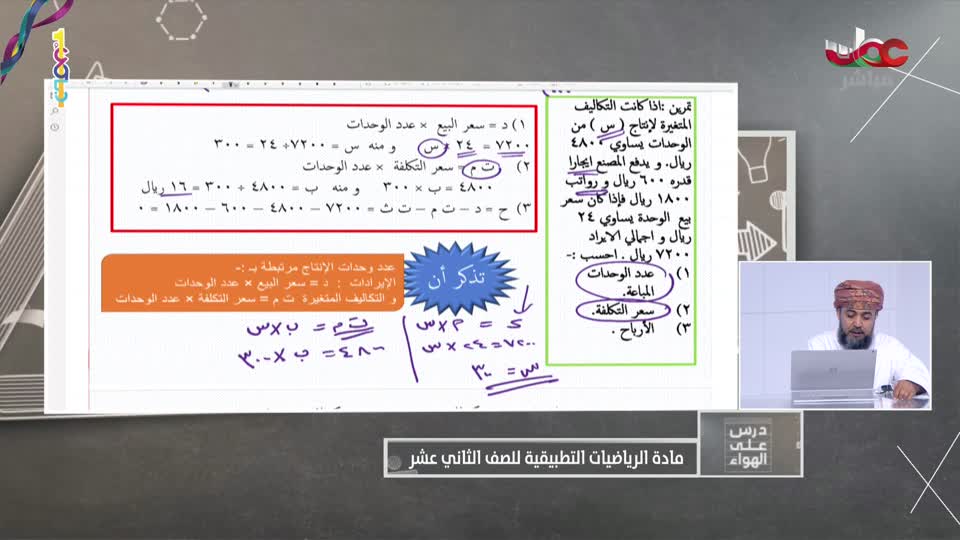 عمان
مباشر
تمرين :اذا كانت التكاليف
المتغيرة لإنتاج ( س ) من
الوحدات يساوي ٤٨٠٠
ريال. و يدفع المصنع ايجارا
قدره ٦٠٠ ريال و رواتب
١٨٠٠ ريال فإذا كان سعر
بيع الوحدة يساوي ٢٤
ريال و اجمالي الايراد
٧٢٠٠ ريال . احسب :-
١) عدد الوحدات
المباعة.
٢) سعر التكلفة.
٣) الأرباح .
١) د = سعر البيع × عدد الوحدات
٧٢٠٠ = ٢٤ × س و منه س = ٧٢٠٠ ÷ ٢٤ = ٣٠٠
٢) ت م = سعر التكلفة × عدد الوحدات
٤٨٠٠ = ب × ٣٠٠ و منه ب = ٤٨٠٠ ÷ ٣٠٠ = ١٦ ريال
٣) ح = د – ت م – ت ث = ٧٢٠٠ – ٤٨٠٠ – ٦٠٠ – ١٨٠٠ = ٠
تذكر أن
عدد وحدات الإنتاج مرتبطة بـ :-
الإيرادات : د = سعر البيع × عدد الوحدات
و التكاليف المتغيرة ت م = سعر التكلفة × عدد الوحدات
د = م × س
٧٢٠٠ = ٢٤ × س
س = ٣٠٠
ت م = ب × س
٤٨٠٠ = ب × ٣٠٠
درس
على
الهواء
مادة الرياضيات التطبيقية للصف الثاني عشر